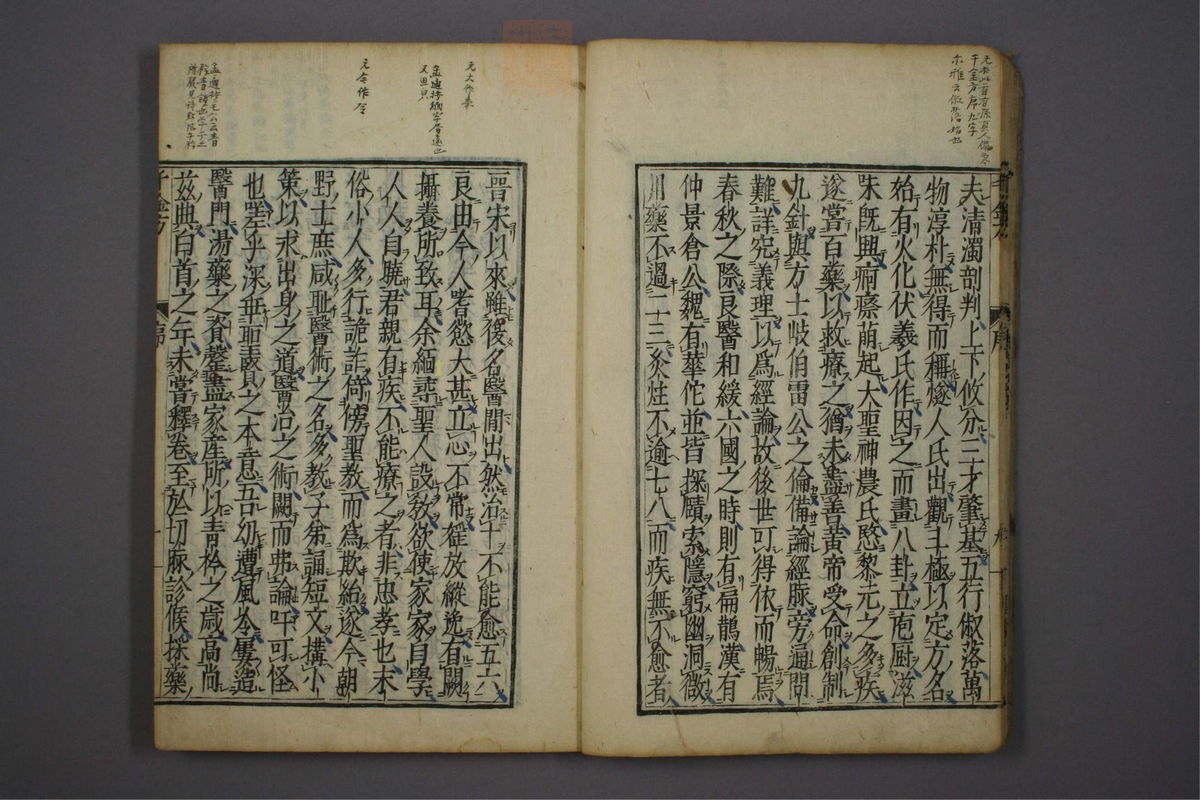 夫清濁剖判上下攸分三才肇基五行俶落萬
物淳朴無得而稱燧人氏出觀斗極以定方名
始有火化伏羲氏作因之而畫八卦立庖厨滋
味旣興痾瘵萠起大聖神農氏愍黎元之多疾
遂嘗百藥以救療之猶未盡善黃帝受命創制
九針與方士岐伯雷公之倫備論經脉旁通問
難詳究義理以爲經論故後世可得依而暢焉
春秋之際良醫和緩六國之時則有扁鵲漢有
仲景倉公魏有華佗並皆探賾索隱窮幽洞微
用藥不過二三灸炷不逾七八而疾無不愈者
晋宋以來雖復名醫閒出然治十不能愈五六
良由今人嗜慾大甚立心不常婬放縱逸有闕
攝養所致耳余緬尋聖人設敎欲使家家自學
人人自曉君親有疾不能療之者非忠孝也末
俗小人多行詭詐倚傍聖教而爲欺紿遂令朝
野士庶咸恥醫術之名多教子弟誦短文搆小
策以求出身之道醫治之術闕而弗論吁可怪
也嗟乎深乖聖賢之本意吾幼遭風冷屢造
醫門湯藥之資罄盡家産所以青衿之歳高尚
茲典白首之年未嘗釋卷至於切脉診候採藥
千金方
序
元大作泰
元令作令